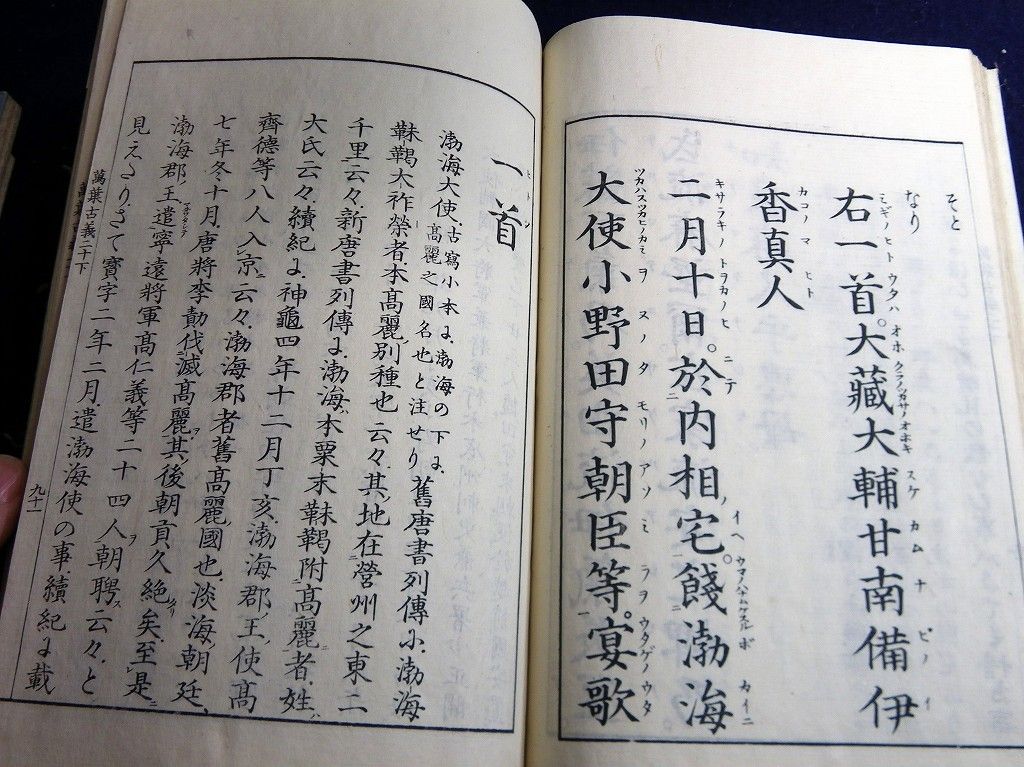 そと
なり
右一首。大藏大輔甘南備伊
香真人
二月十日。於内相宅。餞渤海
大使小野田守朝臣等。宴歌
一首
渤海大使、古寫小本に、渤海の下に、高麗之國名也と注せり、舊唐書列傳に、渤海
靺鞨大祚榮者本高麗別種也云々、其地在營州之東二
千里云々、新唐書列傳に、渤海本粟末靺鞨附高麗者、姓
大氏云々、續紀に、神龜四年十二月丁亥、渤海郡王使高
齊德等八人入京云々、渤海郡者舊高麗國也、淡海朝廷、
七年冬十月、唐將李勣伐滅高麗、其後朝貢久絶矣、至是
渤海郡王遣寧遠將軍高仁義等二十四人朝聘云々、と
見えたり、さて寶字二年二月、遣渤海使の事、續紀に載
萬葉古義二十下
九十一